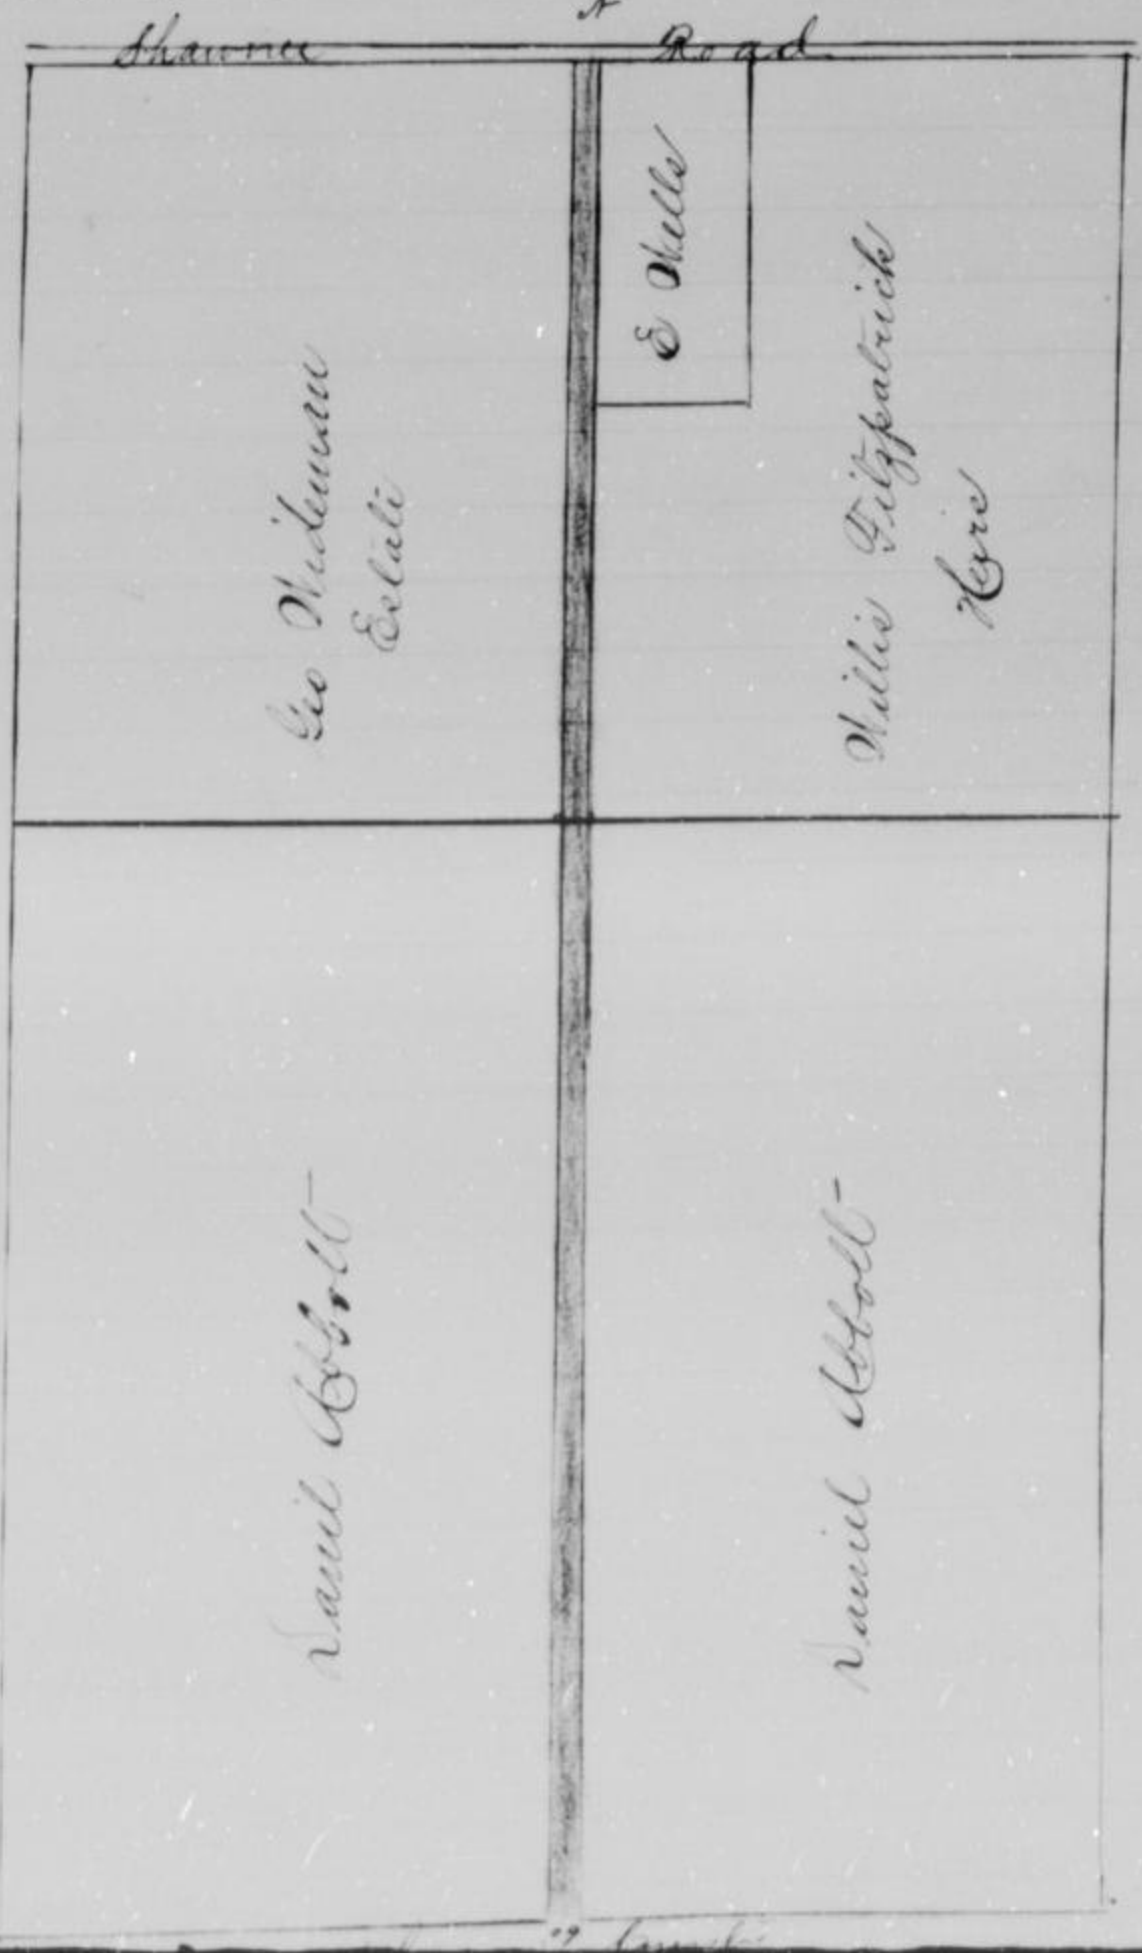 N
Shawnee Road
Geo Wideman
Estate
E Wells
Willis Fitzpatrick
Heirs
Daniel Abbott
Daniel Abbott